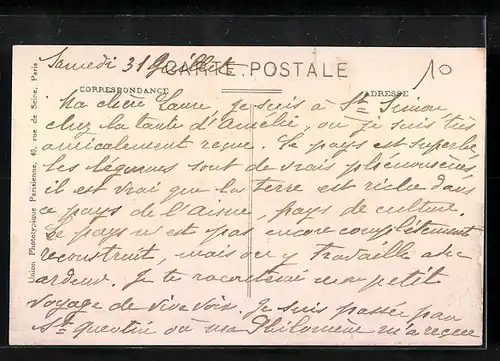 Samedi 31 Juillet
CARTE POSTALE
CORRESPONDANCE
ADRESSE
10
Ma chère Laure, je suis à St Simon,
chez la tante d'Amélie, où je suis très
amicalement reçue. Le pays est superbe,
les légumes sont de vrais phénomènes,
il est vrai que la terre est riche dans
ce pays de l'Aisne, pays de culture.
Le pays n'est pas encore complètement
reconstruit, mais on y travaille avec
ardeur. Je te raconterai mon petit
voyage de vive voix. Je suis passée par
St Quentin où ma Philomène m'a reçue
Union Phototypique Parisienne, 40, rue de Seine, Paris